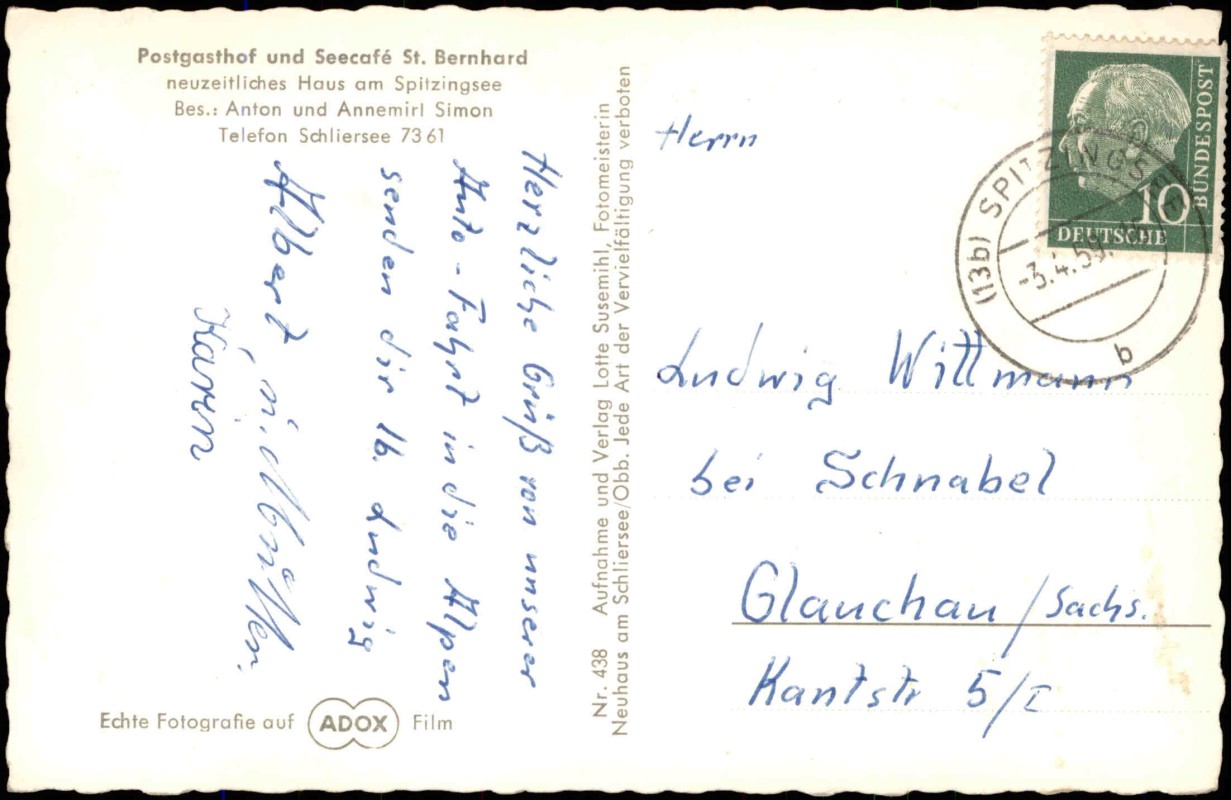 Postgasthof und Seecafé St. Bernhard
neuzeitliches Haus am Spitzingsee
Bes.: Anton und Annemirl Simon
Telefon Schliersee 73 61
Herzliche Grüß von unserer
Auto-Fahrt in die Alpen
senden dir lb. Ludwig
Albert
Karin
Echte Fotografie auf ADOX Film
Nr. 438 Aufnahme und Verlag Lotte Susemihl, Fotomeisterin
Neuhaus am Schliersee/Obb. Jede Art der Vervielfältigung verboten
DEUTSCHE
BUNDESPOST
10
(13b) SPITZINGSEE
-3.4.59.
b
Herrn
Ludwig Wittmann
bei Schnabel
Glauchau/Sachs.
Kantstr 5/I